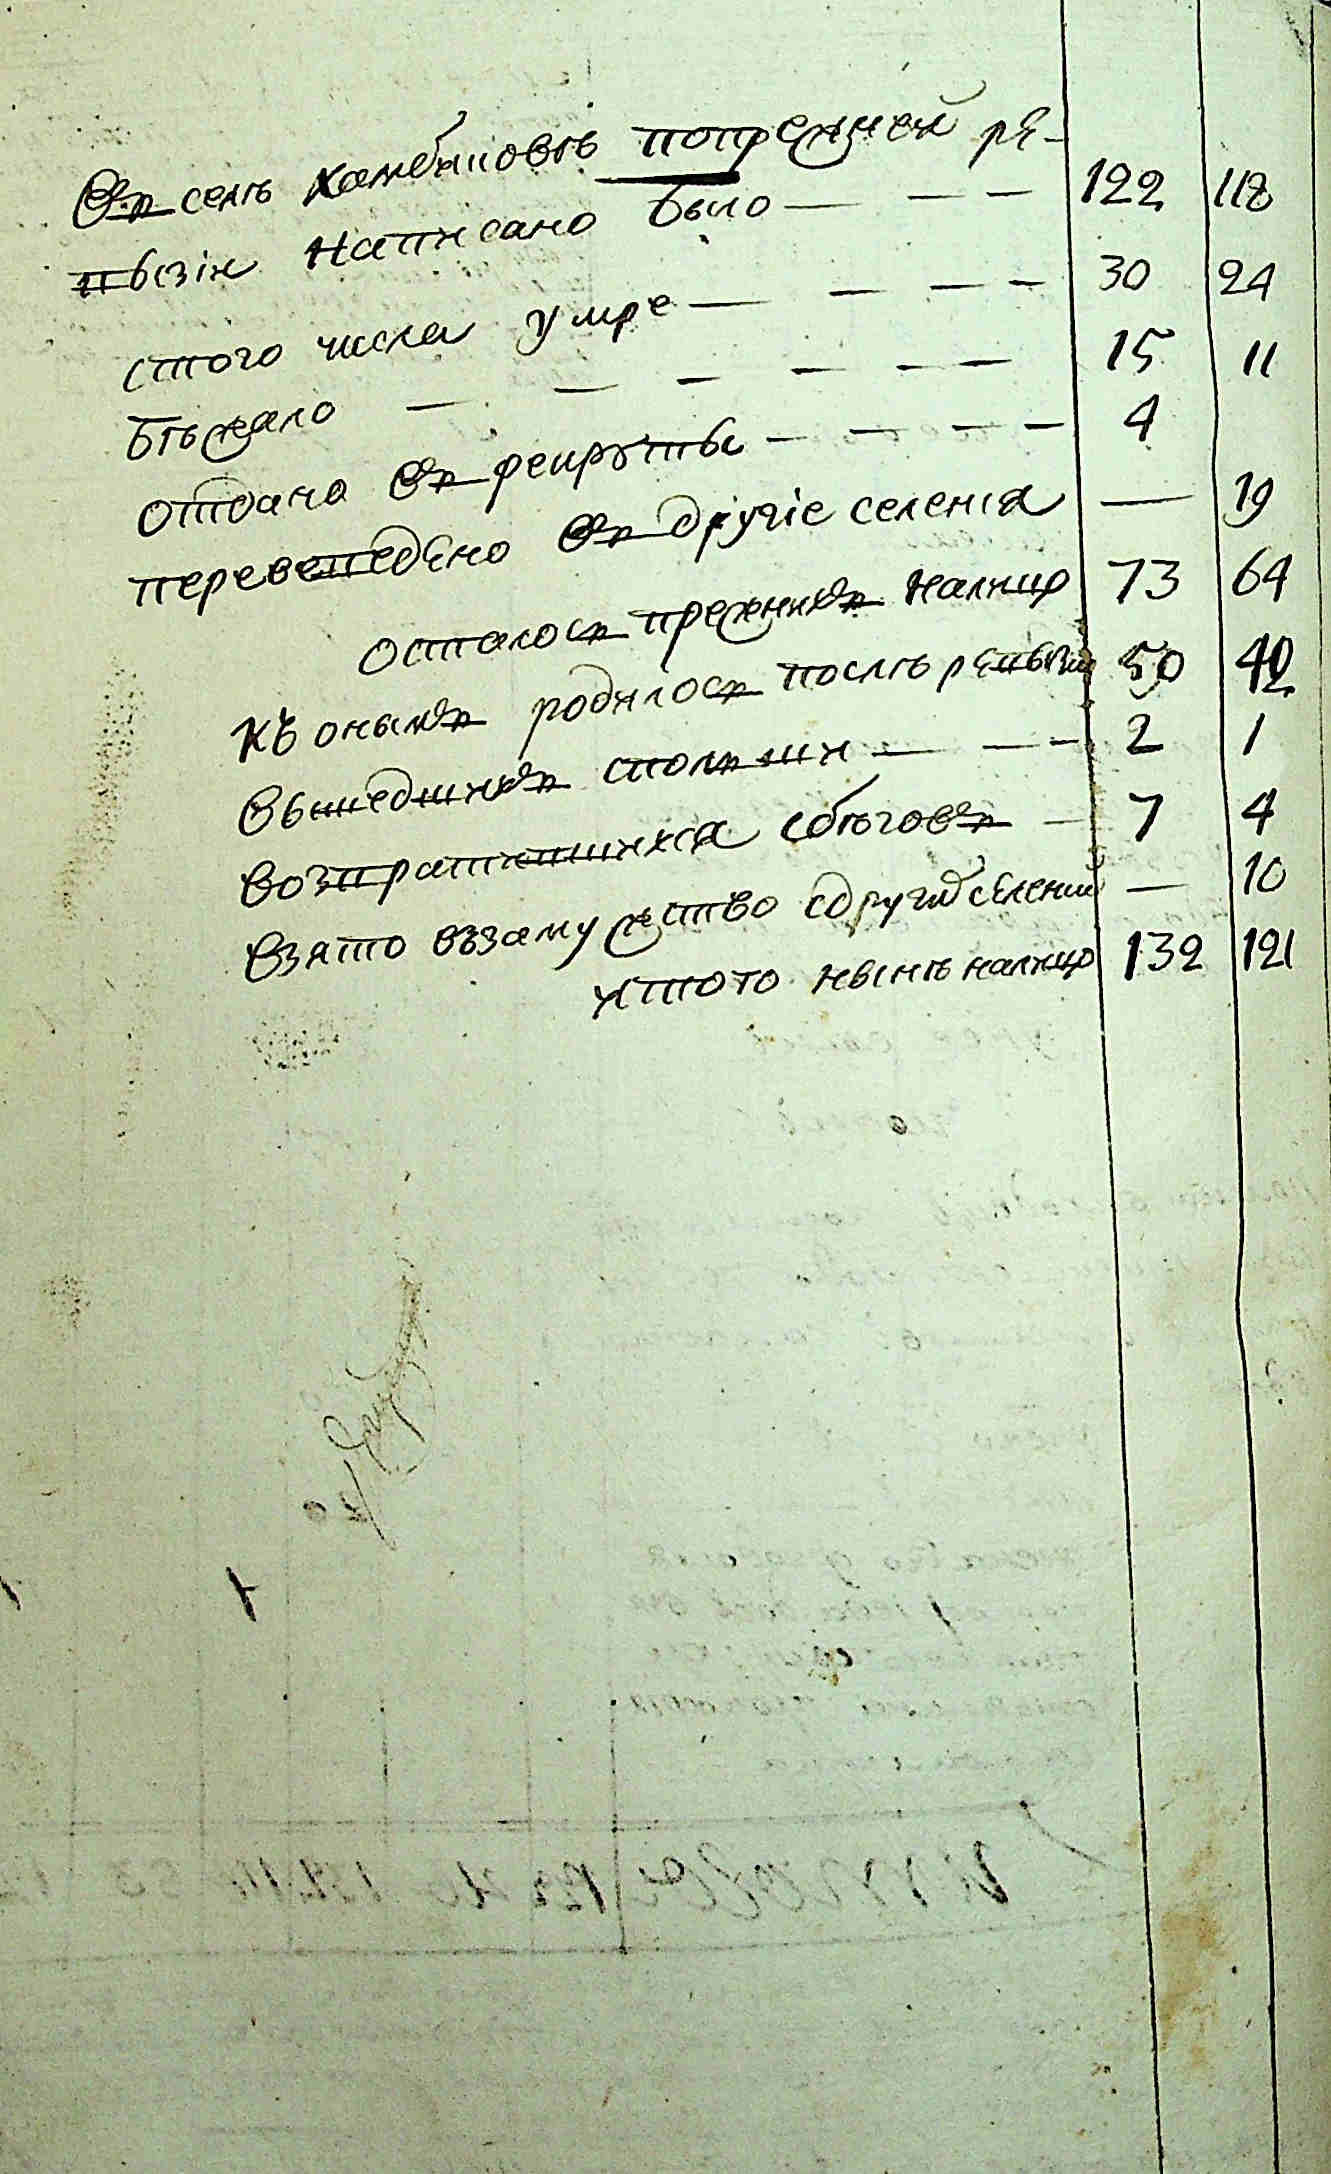 Въ селѣ Камбиловѣ попрежней ре-
визіи написано было — — — 122 118
стого числа умре — — — — 30 24
бѣжало — — — — — — 15 11
отдано въ рекруты — — — — 4
переведено въ другіе селенія — 19
осталось прежнихъ налицо 73 64
къ онымъ родилось послѣ ревизіи 50 42
вышедшихъ — — — 2 1
возвратившихся сбѣговъ — 7 4
взято взамужство здругих селеній — 10
итого нынѣ налицо 132 121